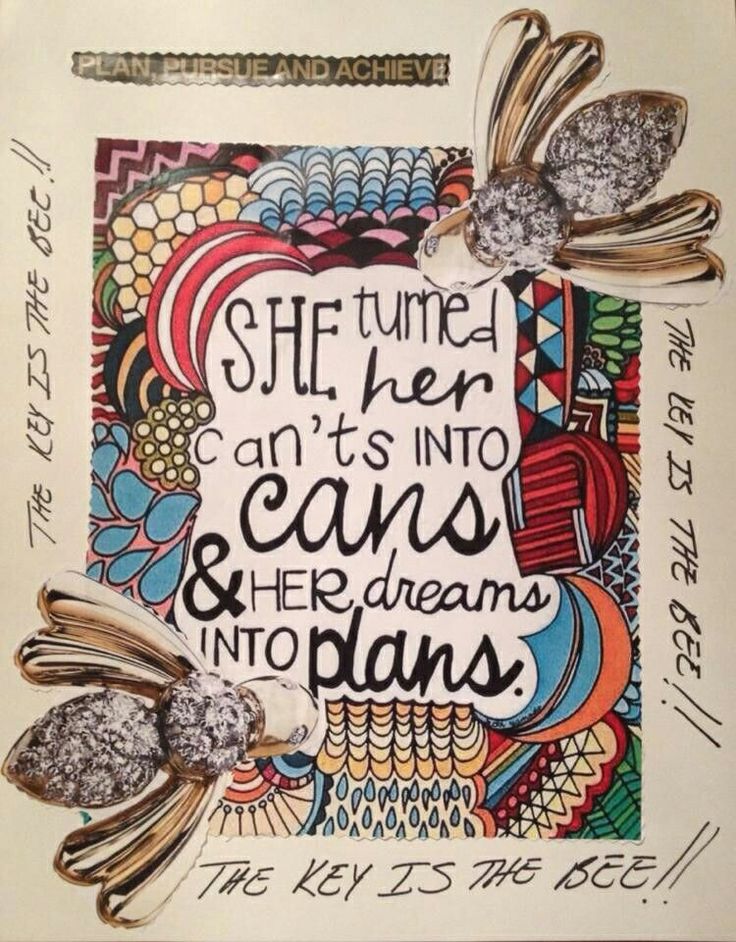 PLAN, PURSUE AND ACHIEVE
THE KEY IS THE BEE!!
SHE turned
her
can'ts INTO
cans
& HER dreams
INTO plans.
THE KEY IS THE BEE!!
THE KEY IS THE BEE!!